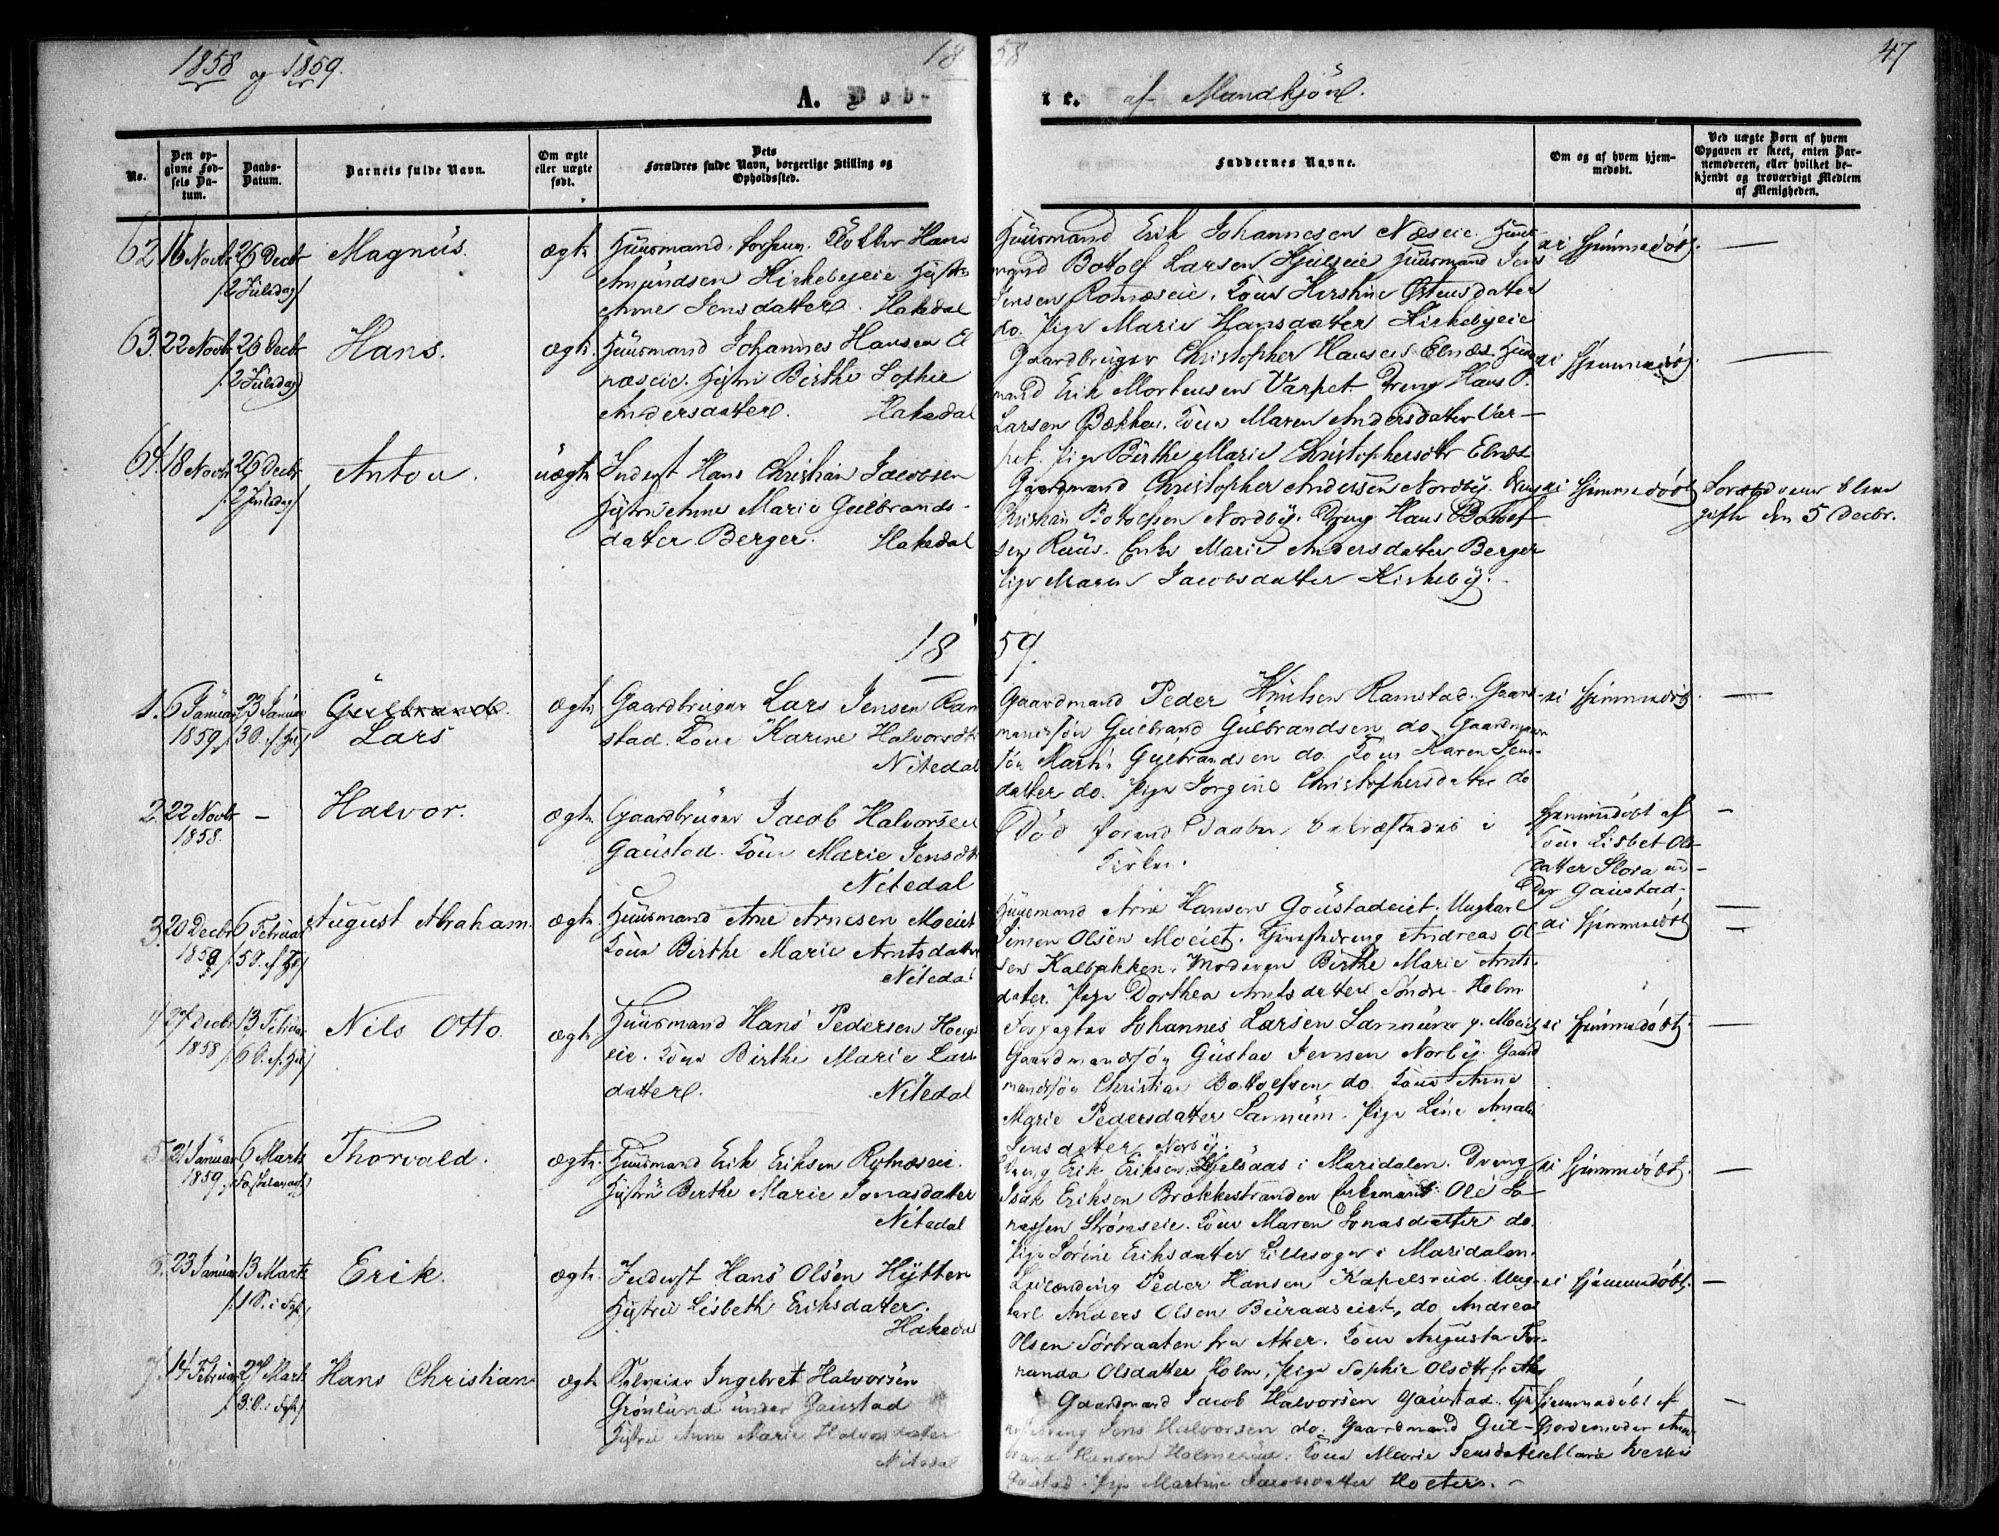 1858 og 1859.
18 58
47
A. Døbte. af Mandkjøn.
No.
Den opgivne Fødsels Datum.
Daabs-Datum.
Barnets fulde Navn.
Om ægte eller uægte født.
Dets Forældres fulde Navn, borgerlige Stilling og Opholdssted.
Faddernes Navne.
Om og af hvem hjemmedøbt.
Ved uægte Børn af hvem Opgaven er skeet, enten Barnemoderen, eller hvilket bekjendt og troværdigt Medlem af Menigheden.
62 16 Novbr 26 Decbr Magnus. ægte
/2 Juledag/
Huusmand, Hans
Amundsen Kirkebyeie Hustru
Anne Jensdatter. Hakedal
Huusmand Erik Johannesen Næseie. Huus-
mand Bottolf Larsen Hjulseie Huusmand Jens
Jensen Rotnæseie. Kone Kirstine Ostensdatter
do. Pige Marie Hansdatter Kirkebyeie
ei hjemmedøbt. —
63. 22 Novbr 26 Decbr Hans. ægte.
/2 Juledag/
Huusmand Johannes Hansen El-
næseie. Hustru Birthe Sophie
Andersdatter. Hakedal
Gaardbruger Christopher Hansen Elnæs. Huus-
mand Erik Mortensen Varpet. Dreng Hans P.
Larsen Bækken. Kone Maren Andersdatter Var-
pet. Pige Birthe Marie Christophersdtr Elnæs
ei hjemmedøbt. —
64. 18 Novbr 26 Decbr Anton. uægte
/2 Juledag/
Inderst Hans Christian Jacobsen
Hustru Anne Marie Gulbrands-
datter Berger. Hakedal
Gaardmand Christopher Andersen Nordby. Dreng
Christian Bottolfsen Nordby. Dreng Hans Bottolf-
sen Ruus. Enke Marie Andersdatter Berger
Pige Maren Jacobsdatter Kirkeby.
ei hjemmedøbt
Forældrene blevne
gifte den 5 Decbr.
18 59.
1. 6 Januar 23 Januar Gulbrand. ægte
1859 /3 S. e/ H. 3 K./
Lars
Gaardbruger Lars Jensen Ram-
stad. Kone Karine Halvorsdtr
Nitedal
Gaardmand Peder Knudsen Ramstad. Gaard-
mandssøn Gulbrand Gulbrandsen do. Gaardmands-
søn Martin Gulbrandsen do. Kone Karen Jens-
datter do. Pige Jørgine Christophersdatter do
ei hjemmedøbt —
2. 22 Novbr — Halvor. ægte
1858.
Gaardbruger Jacob Halvorsen
Gaustad. Kone Marie Jensdtr
Nitedal
Død forend Daaben bekræftedes i
Kirken.
hjemmedøbt af
Kone Lisbet Ols-
datter Flora un-
der Gaustad. —
3. 20 Decbr 6 Februar August Abraham. ægte.
Huusmand Arne Arnesen Moeiet
Kone Birthe Marie Arntsdatter
Nitedal
Huusmand Arne Hansen Goustadeiet. Ungkarl
Simen Olsen Moeiet. Tjenestdreng Andreas Ol-
sen Kalbakken. Moderen Birthe Marie Arnts-
datter. Pige Dorthea Arntsdatter Søndre Holm
ei hjemmedøbt —
4. 27 Decbr 13 Februar Nils Otto. ægte.
1858
Huusmand Hans Pedersen Houg-
eie. Kone Birthe Marie Lars-
datter. Nitedal
Forpagter Johannes Larsen Sannum p. Moeiet
Gaardmandssøn Gustav Jensen Norby. Gaard-
mandssøn Christian Bottolfsen do. Kone Anne
Marie Pedersdatter Sannum. Pige Line Amalie
Jensdatter Norby.
ei hjemmedøbt. —
5. 21 Januar 6 Marts Thorvald. ægte.
1859. /Fastelavnsd/
Huusmand Erik Eriksen Rotnæseie.
Hustru Birthe Marie Jonasdatter
Nitedal
Dreng Erik Eriksen Kjelsaas i Maridalen. Dreng
Isak Eriksen Brækkestranden Enkemand Ole Jo-
nassen Strømseie. Kone Maren Jonasdatter do.
Pige Sørine Eriksdatter Lillesoger i Maridalen.
ei hjemmedøbt. —
6. 23 Januar 13 Marts Erik. ægte.
/1 S. i Faste/
Inderst Hans Olsen Hytten
Hustru Lisbeth Eriksdatter.
Hakedal
Leilænding Peder Hansen Kapelsrud. Ung-
karl Anders Olsen Buraaseiet, do Andreas
Olsen Sørbraaten fra Aker. Kone Augusta Fer-
nanda Olsdatter Holm, Pige Sophie Olsdtr fr. Aker
ei hjemmedøbt. —
7. 14 Februar 27 Marts Hans Christian ægte
/3 S. i Faste/
Selveier Ingebret Halvorsen
Grønlund under Gaustad
Hustru Anne Marie Halvorsdatter
Nitedal
Gaardmand Jacob Halvorsen Gaustad. Tje-
nestedreng Jens Halvorsen do. Gaardmand Gul-
brand Hansen Holmerud. Kone Marie Jensdatter
Gaustad. Pige Martine Jacobsdatter Hoeters. —
hjemmedøbt af
Jordemoder Anne
Maria